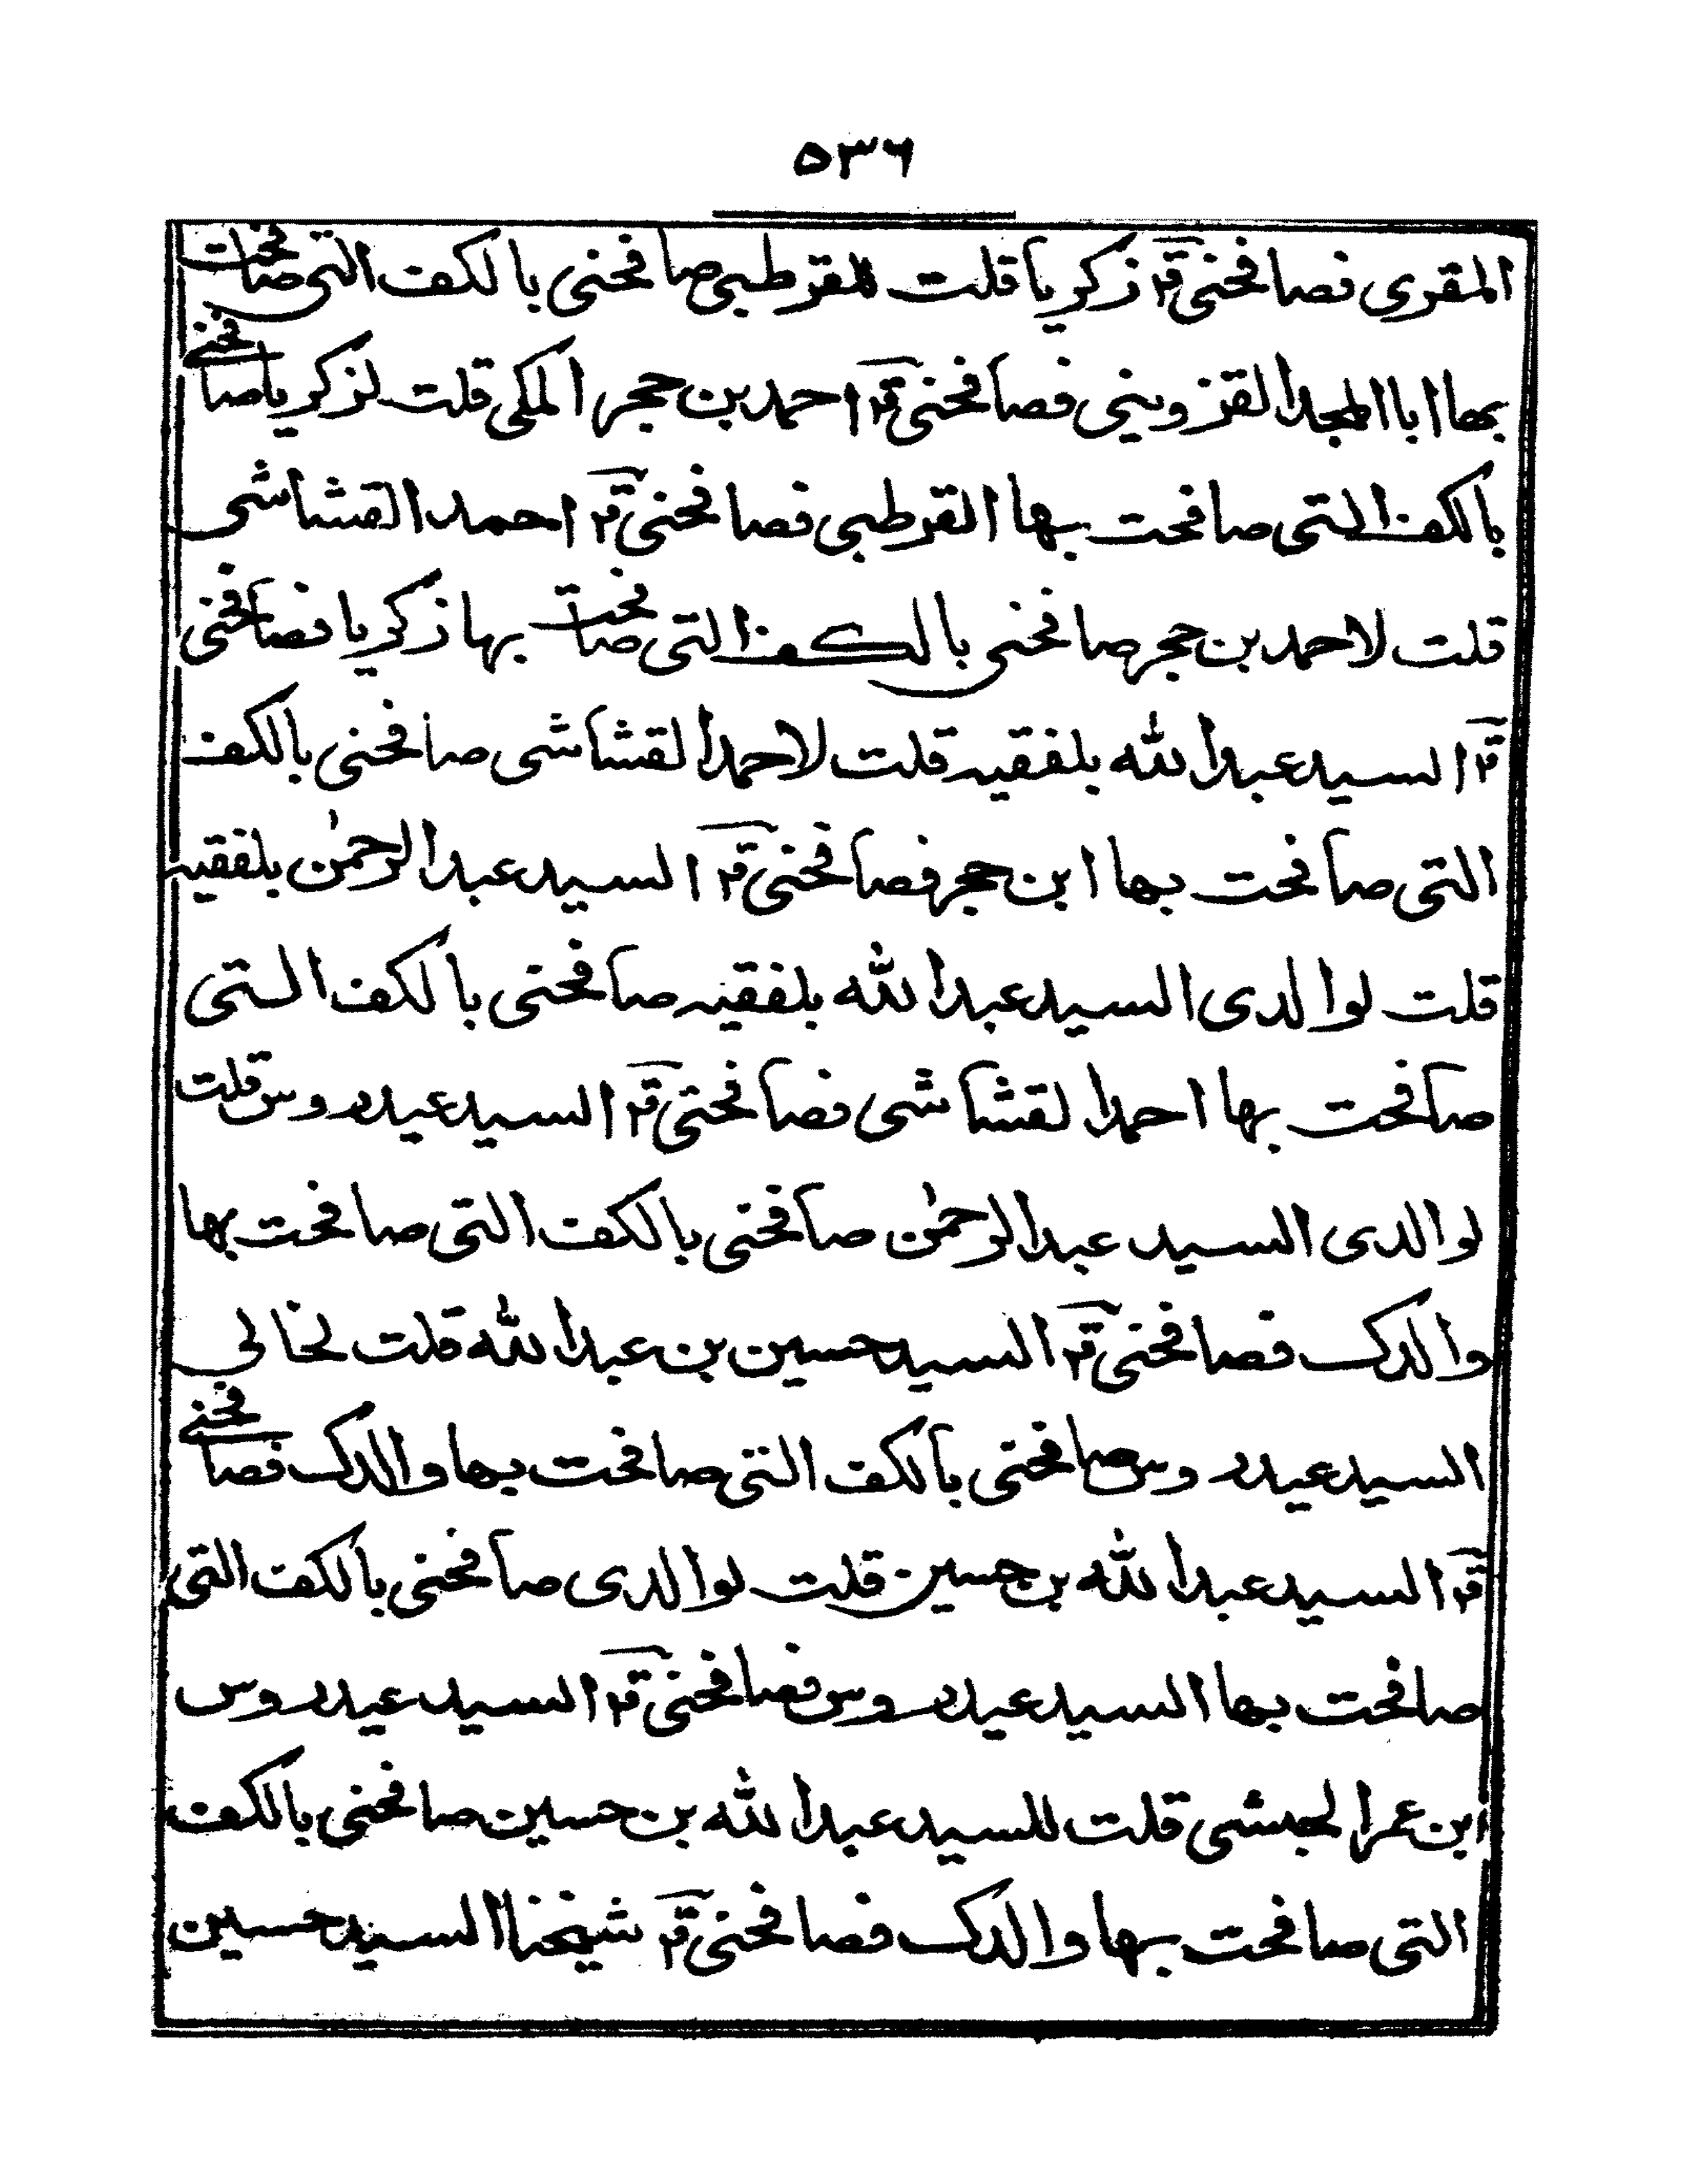 ٥٣٦
المقرى فصافحنى قٓ٢ زكريا قلت للقرطبى صافحنى بالكف التى صافحت
بها ابا المجد القزوينى فصافحنى قٓ٢ احمد بن حجر المكى قلت لزكريا صافحنى
بالكف التى صافحت بها القرطبى فصافحنى قٓ٢ احمد القشاشى
قلت لاحمد بن حجر صافحنى بالكف التى صافحت بها زكريا فصافحنى
قٓ٢ السيد عبد الله بلفقيه قلت لاحمد القشاشى صافحنى بالكف
التى صافحت بها ابن حجر فصافحنى قٓ٢ السيد عبد الرحمٰن بلفقيه
قلت لوالدى السيد عبد الله بلفقيه صافحنى بالكف التى
صافحت بها احمد القشاشى فصافحنى قٓ٢ السيد عيدروس قلت
لوالدى السيد عبد الرحمٰن صافحنى بالكف التى صافحت بها
والدك فصافحنى قٓ٢ السيد حسين بن عبد الله قلت لخالى
السيد عيدروس صافحنى بالكف التى صافحت بها والدك فصافحنى
قٓ٢ السيد عبد الله بن حسين قلت لوالدى صافحنى بالكف التى
صافحت بها السيد عيدروس فصافحنى قٓ٢ السيد عيدروس
ابن عمر الحبشى قلت للسيد عبد الله بن حسين صافحنى بالكف
التى صافحت بها والدك فصافحنى قٓ٢ شيخنا السيد حسين